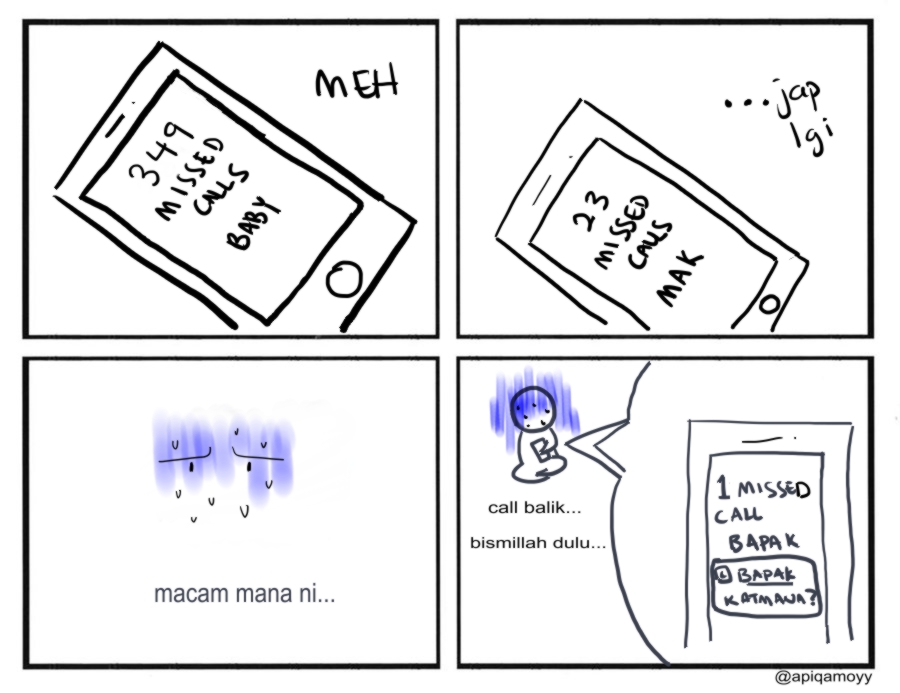 MEH
349
MISSED
CALLS
BABY
...jap
lgi
23
MISSED
CALLS
MAK
macam mana ni...
call balik...
bismillah dulu...
1 MISSED
CALL
BAPAK
BAPAK
KATMANA?
@apiqamoyy